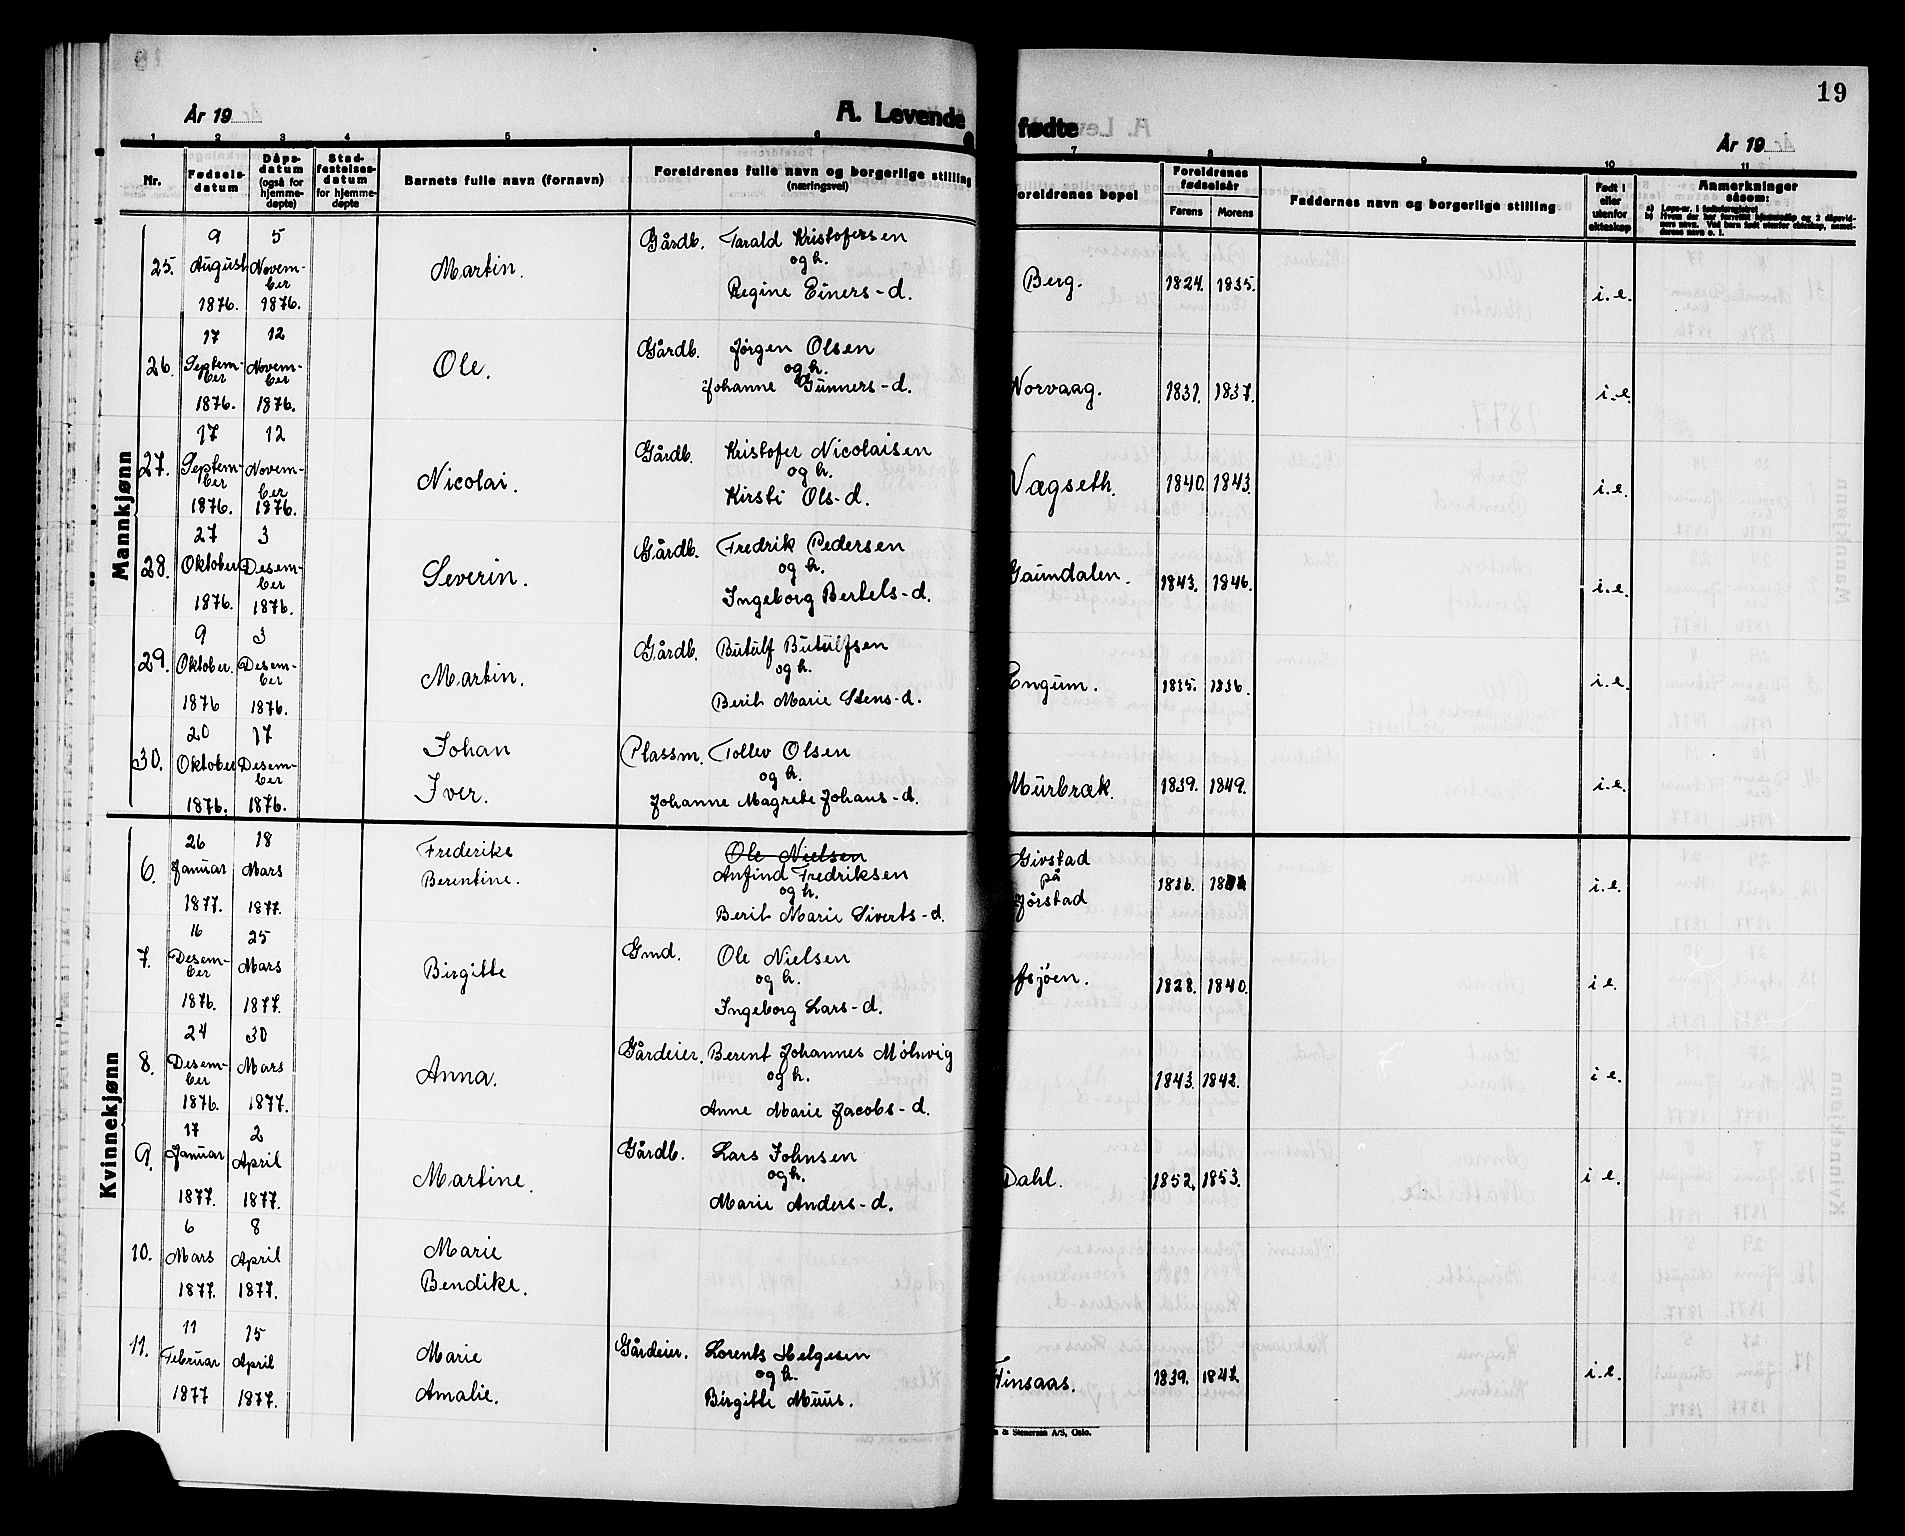 19
År 19
A. Levende fødte
År 19
1 2 3 4 5 6 7 8 9 10 11
Nr. Fødselsdatum Dåpsdatum (også for hjemmedøpte) Stadfestelsesdatum for hjemmedøpte Barnets fulle navn (fornavn) Foreldrenes fulle navn og borgerlige stilling (næringsvei) Foreldrenes bopel Foreldrenes fødselsår Farens Morens Faddernes navn og borgerlige stilling Født i eller utenfor ekteskap Anmerkninger såsom:
Mannkjønn
25. 9 August 1876. 5 November 1876. Martin. Gårdb. Tarald Kristofersen og h. Regine Einers-d. Berg. 1824. 1835. i.e.
26. 17 September 1876. 12 November 1876. Ole. Gårdb. Jörgen Olsen og h. Johanne Gunners-d. Norvaag. 1831. 1837. i.e.
27. 17 September 1876. 12 November 1876. Nicolai. Gårdb. Kristofer Nicolaisen og h. Kirsti Ols-d. Vagseth. 1840. 1843. i.e.
28. 27 Oktober 1876. 3 Desember 1876. Severin. Gårdb. Fredrik Pedersen og h. Ingeborg Bertels-d. Gaundalen. 1843. 1846. i.e.
29. 9 Oktober. 1876 3 Desember 1876. Martin. Gårdb. Butulf Butulfsen og h. Berit Marie Stens-d. Engum. 1835. 1836. i.e.
30. 20 Oktober 1876. 17 Desember 1876. Johan Iver. Plassm. Tollev Olsen og h. Johanne Magrete Johans-d. Murbræk. 1839. 1849. i.e.
Kvinnekjønn
6. 26 Januar 1877. 18 Mars 1877. Frederike Berentine. Ole Nielsen Anfind Fredriksen og h. Berit Marie Siverts-d. Givstad på Jörstad 1836. i.e.
7. 16 Desember 1876. 25 Mars 1877. Birgitte Gmd. Ole Nielsen og h. Ingeborg Lars-d. fsjöen. 1828. 1840. i e.
8. 24 Desember 1876. 30 Mars 1877. Anna. Gårdeier. Berent Johannes Mölnvig og h. Anne Marie Jacobs-d. 1843. 1842. i e.
9. 17 Januar 1877. 2 April 1877. Martine. Gårdb. Lars Johnsen og h. Marie Anders-d. Dahl. 1852. 1853. i e.
10. 6 Mars 1877. 8 April 1877. Marie Bendike.
11. 11 Februar 1877 15 April 1877. Marie Amalie. Gårdeier. Lorents Helgesen og h. Birgitte Muus. Finsaas. 1839. 1842. i.e.
& Stenersen A/S, Oslo.